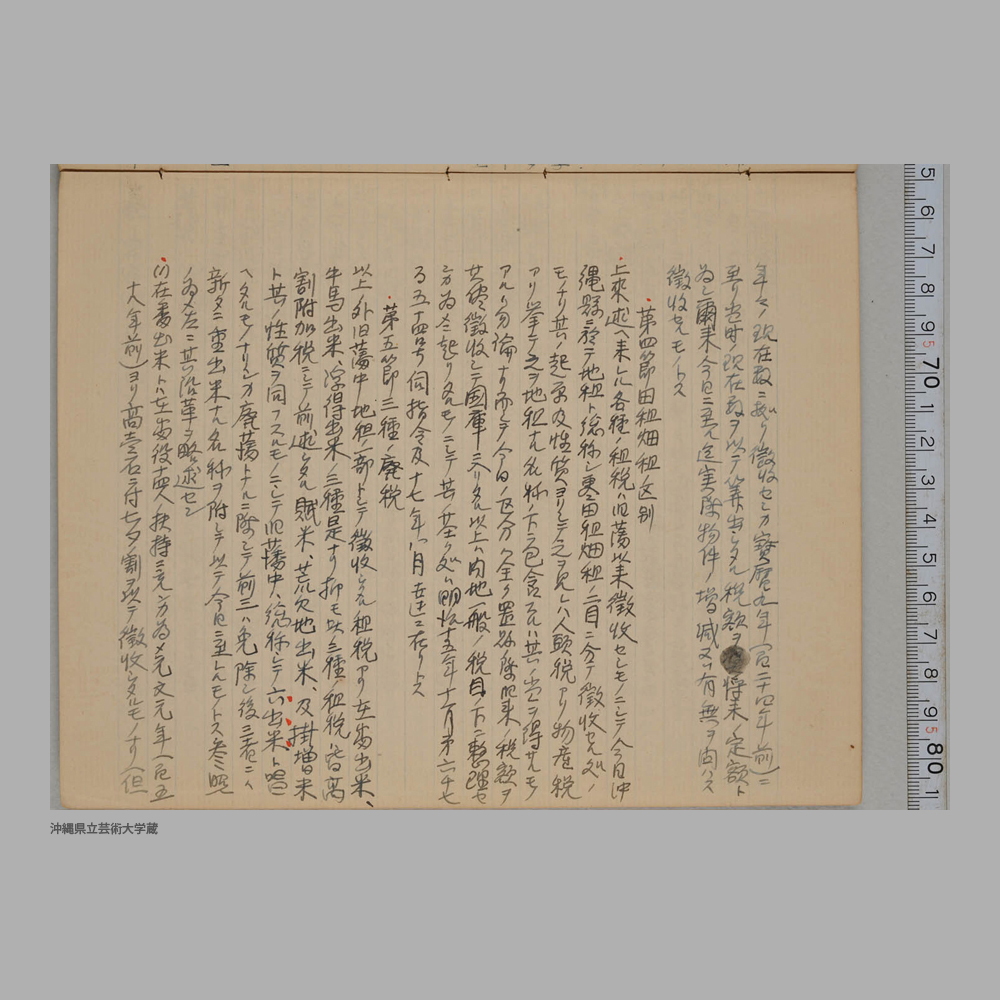 年々ノ現在数ニ拠リ徴收セシカ寳暦九年(百二十四年前)ニ
至リ当時ノ現在数ヲ以テ算出シタル税額ヲ将来ノ定額ト
為シ爾来今日ニ至ル迄実際物件ノ増減又ハ有無ヲ問ハス
徴收セルモノトス
第四節 田租畑租ノ区別
上来述ヘ来レル各種ノ租税ハ旧藩以来徴收セシモノニシテ今日沖
縄縣ニ於テ地租ト総称シ更ニ田租畑租ノ二目ニ分テ徴收セル処ノ
モノナリ其ノ起原及性質ヨリシテ之ヲ見レハ人頭税アリ物産税
アリ挙テ之ヲ地租ナル名称ノ下ニ包含スルハ其ノ当ヲ得サルモノ
アルハ勿論ナリ而シテ今日ノ区分ハ全ク置縣際旧来ノ税額ヲ
其儘徴收シテ國庫ニ入リタル以上ハ内地一般ノ税目ノ下ニ整理セ
シカ為ニ起リタルモノニシテ其ノ基ク処ハ明治十五年十二月第六十七
号五十四号伺指令及十七年八月 達ニ在リトス
第五節 三種ノ廃税
以上ノ外旧藩中地租ノ一部トシテ徴收シタル租税アリ在番出米、
牛馬出米、浮得出米ノ三種是ナリ抑モ此三種ノ租税ハ皆高
割附加税ニシテ前述シタル賦米、荒欠地出米、及掛増米
ト其ノ性質ヲ同フスルモノニシテ旧藩中ハ総称シテ六出米ト唱
ヘタルモノナリシカ廃藩トナルニ際シテ前三ハ免除シ後三者ニハ
新タニ重出米ナル名称ヲ附シテ以テ今日ニ至レルモノトス参照
ノ為メ左ニ其沿革ヲ略述セン
(1)在番出米トハ在番役十四人扶持ニ充ツル為メ寛文元年(二百五
十八年前)ヨリ高壱石ニ付七夕ノ割ヲ以テ徴收シタルモノナリ(但
5 6 7 8 9 5 70 1 2 3 4 5 6 7 8 9 5 80 1
沖縄県立芸術大学蔵